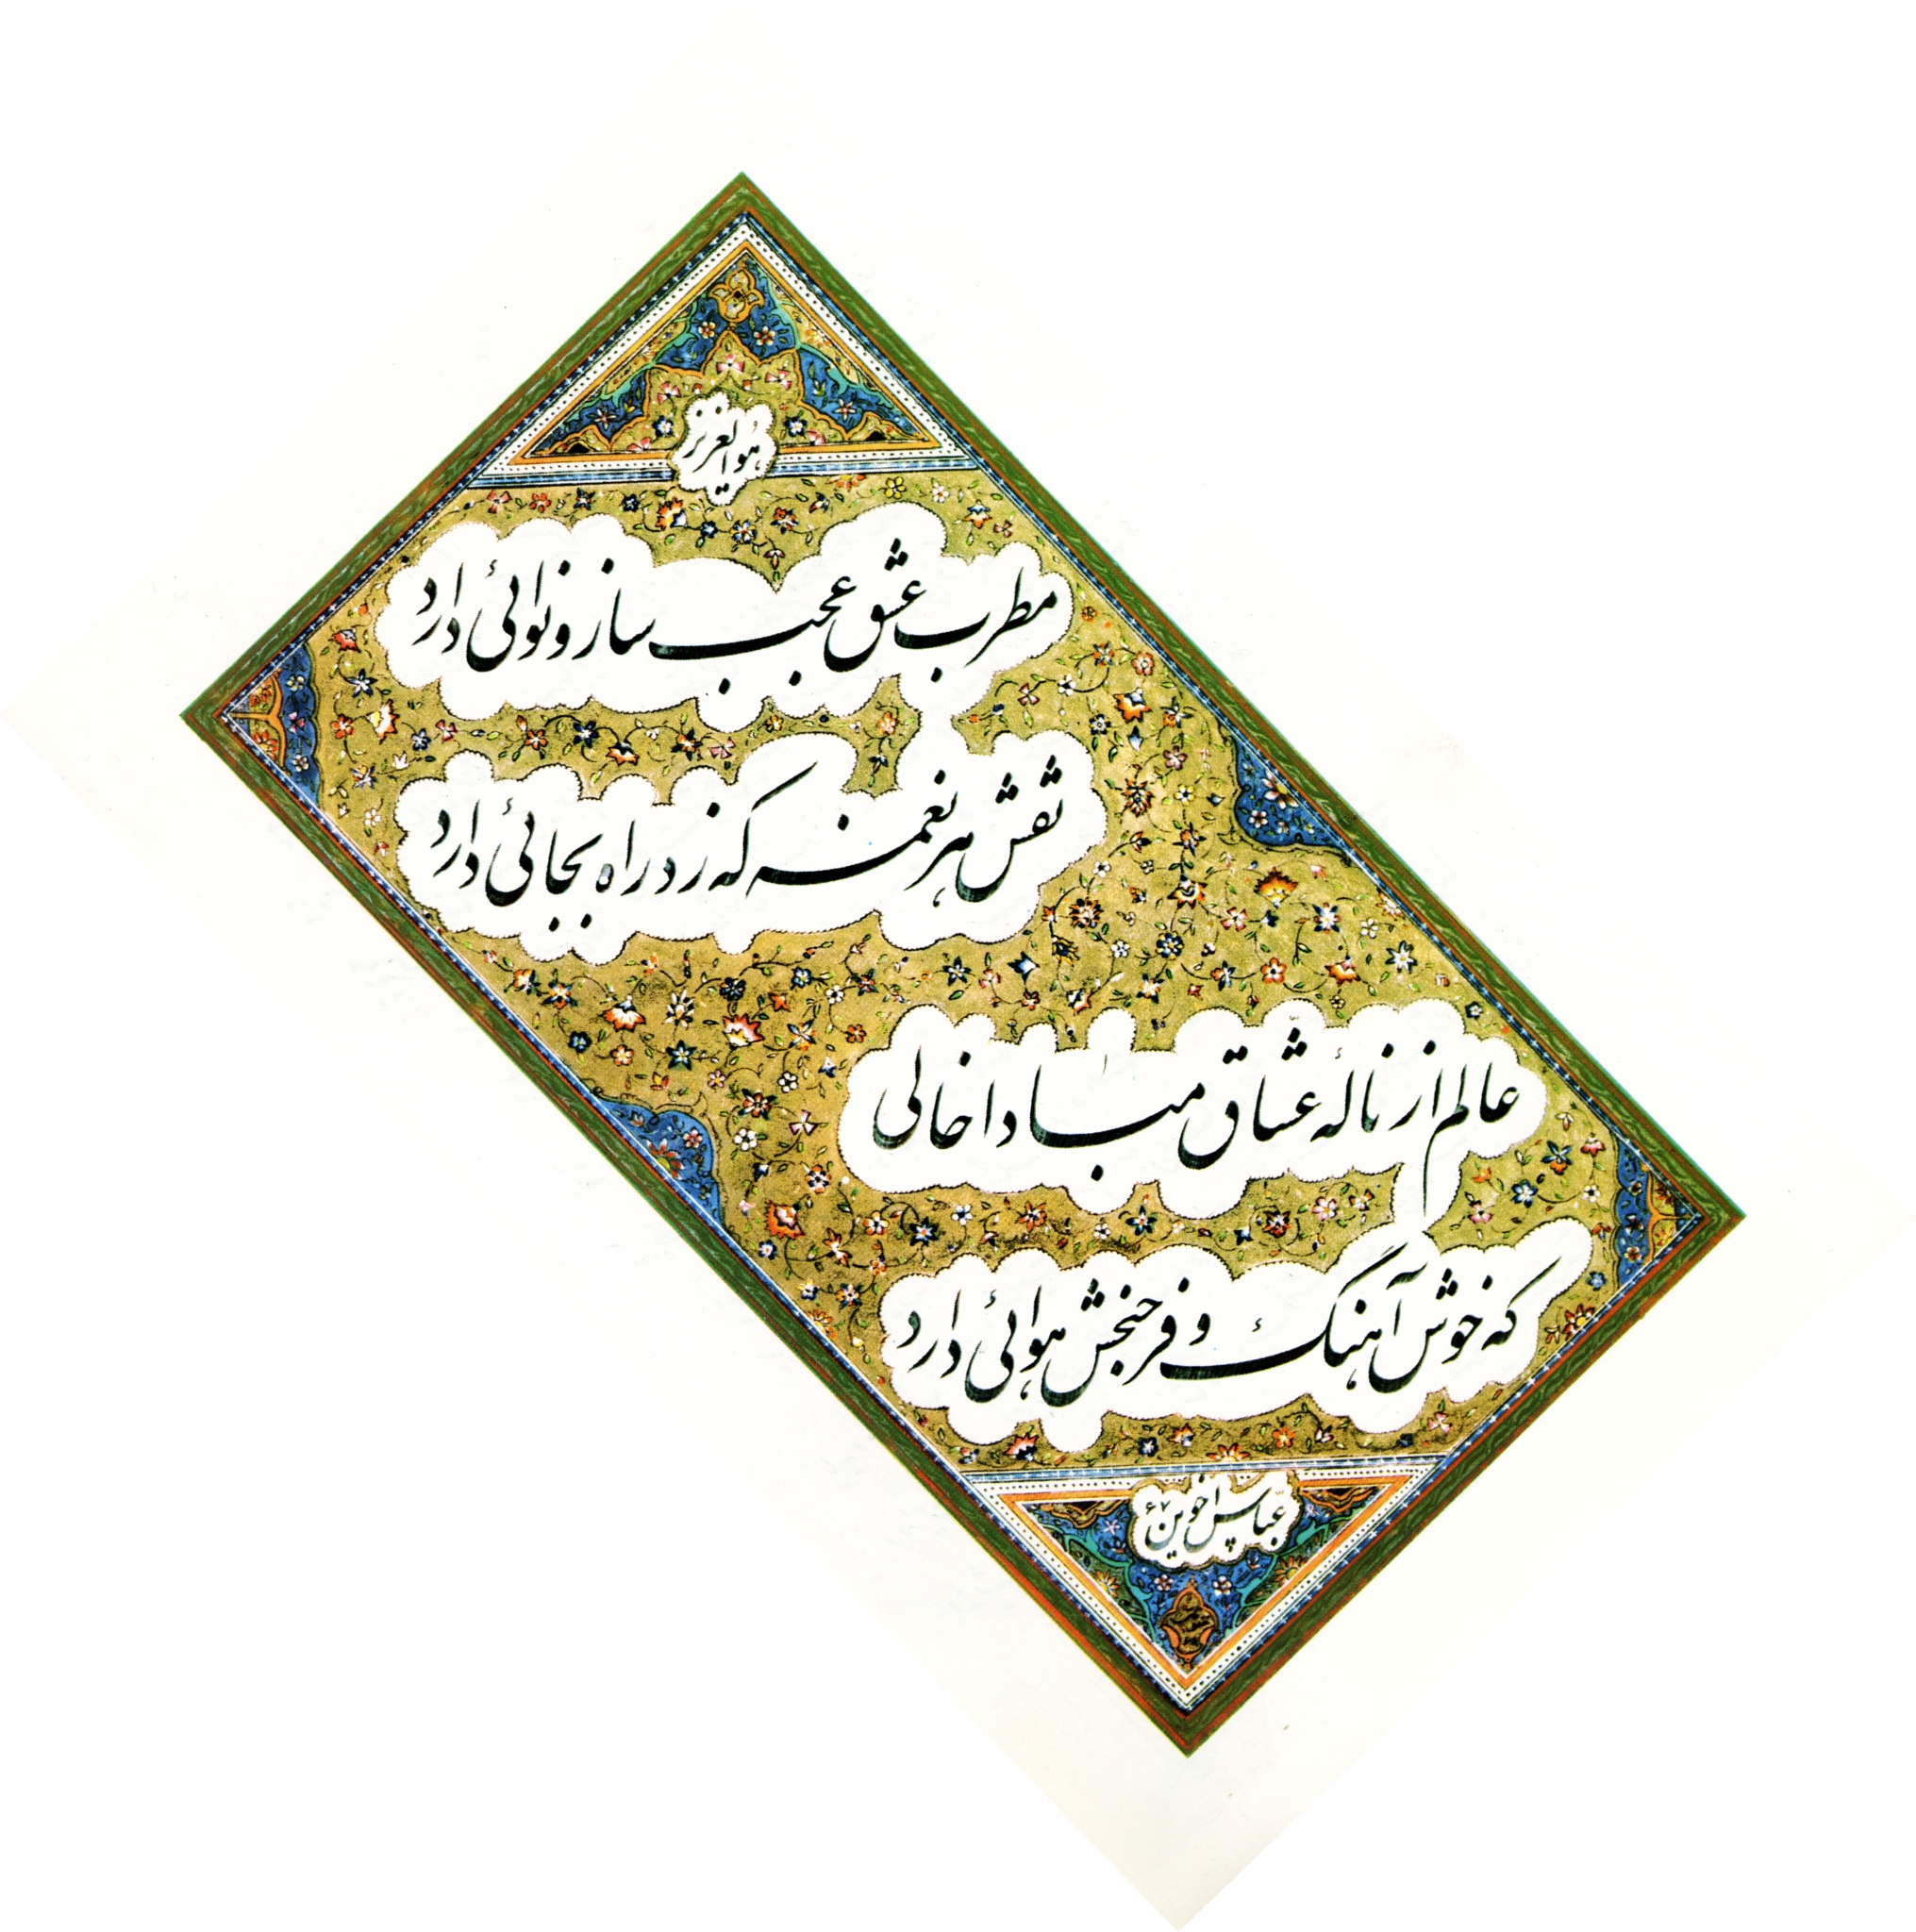 هُوَالعزیز
مطرب عشق عجب ساز و نوائی دارد
نقش هر نغمه که زد راه بجائی دارد
عالم از نالهٔ عشاق مبادا خالی
که خوش آهنگ و فرحبخش هوائی دارد
عباس اخوین ۶۷